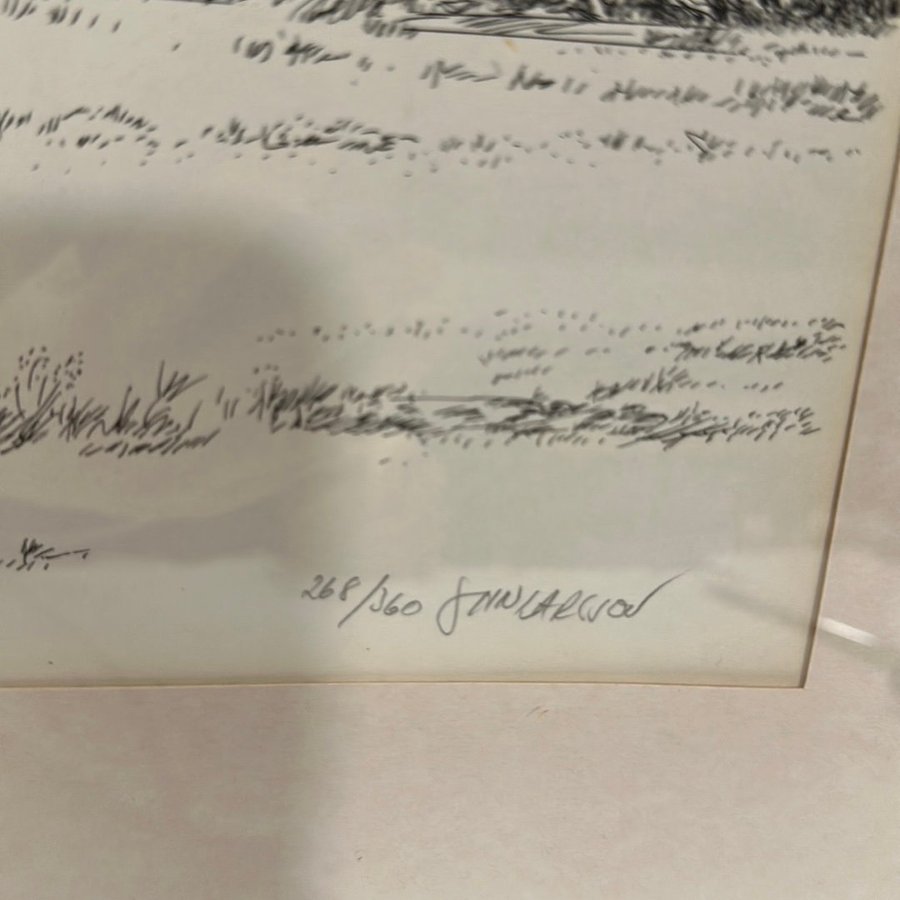 268/360 JOHN LARSSON